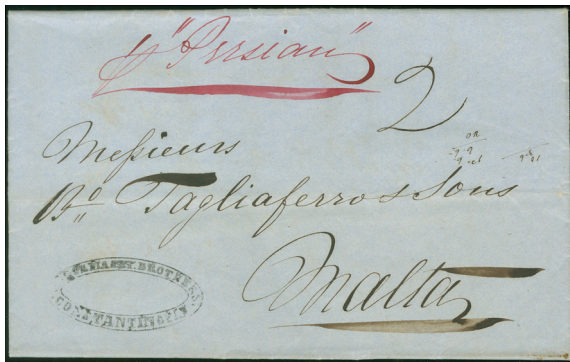 p "Persian"
2
Messieurs
B.º Tagliaferro & Sons
Malta
BROTHERS
CONSTANTINOPLE